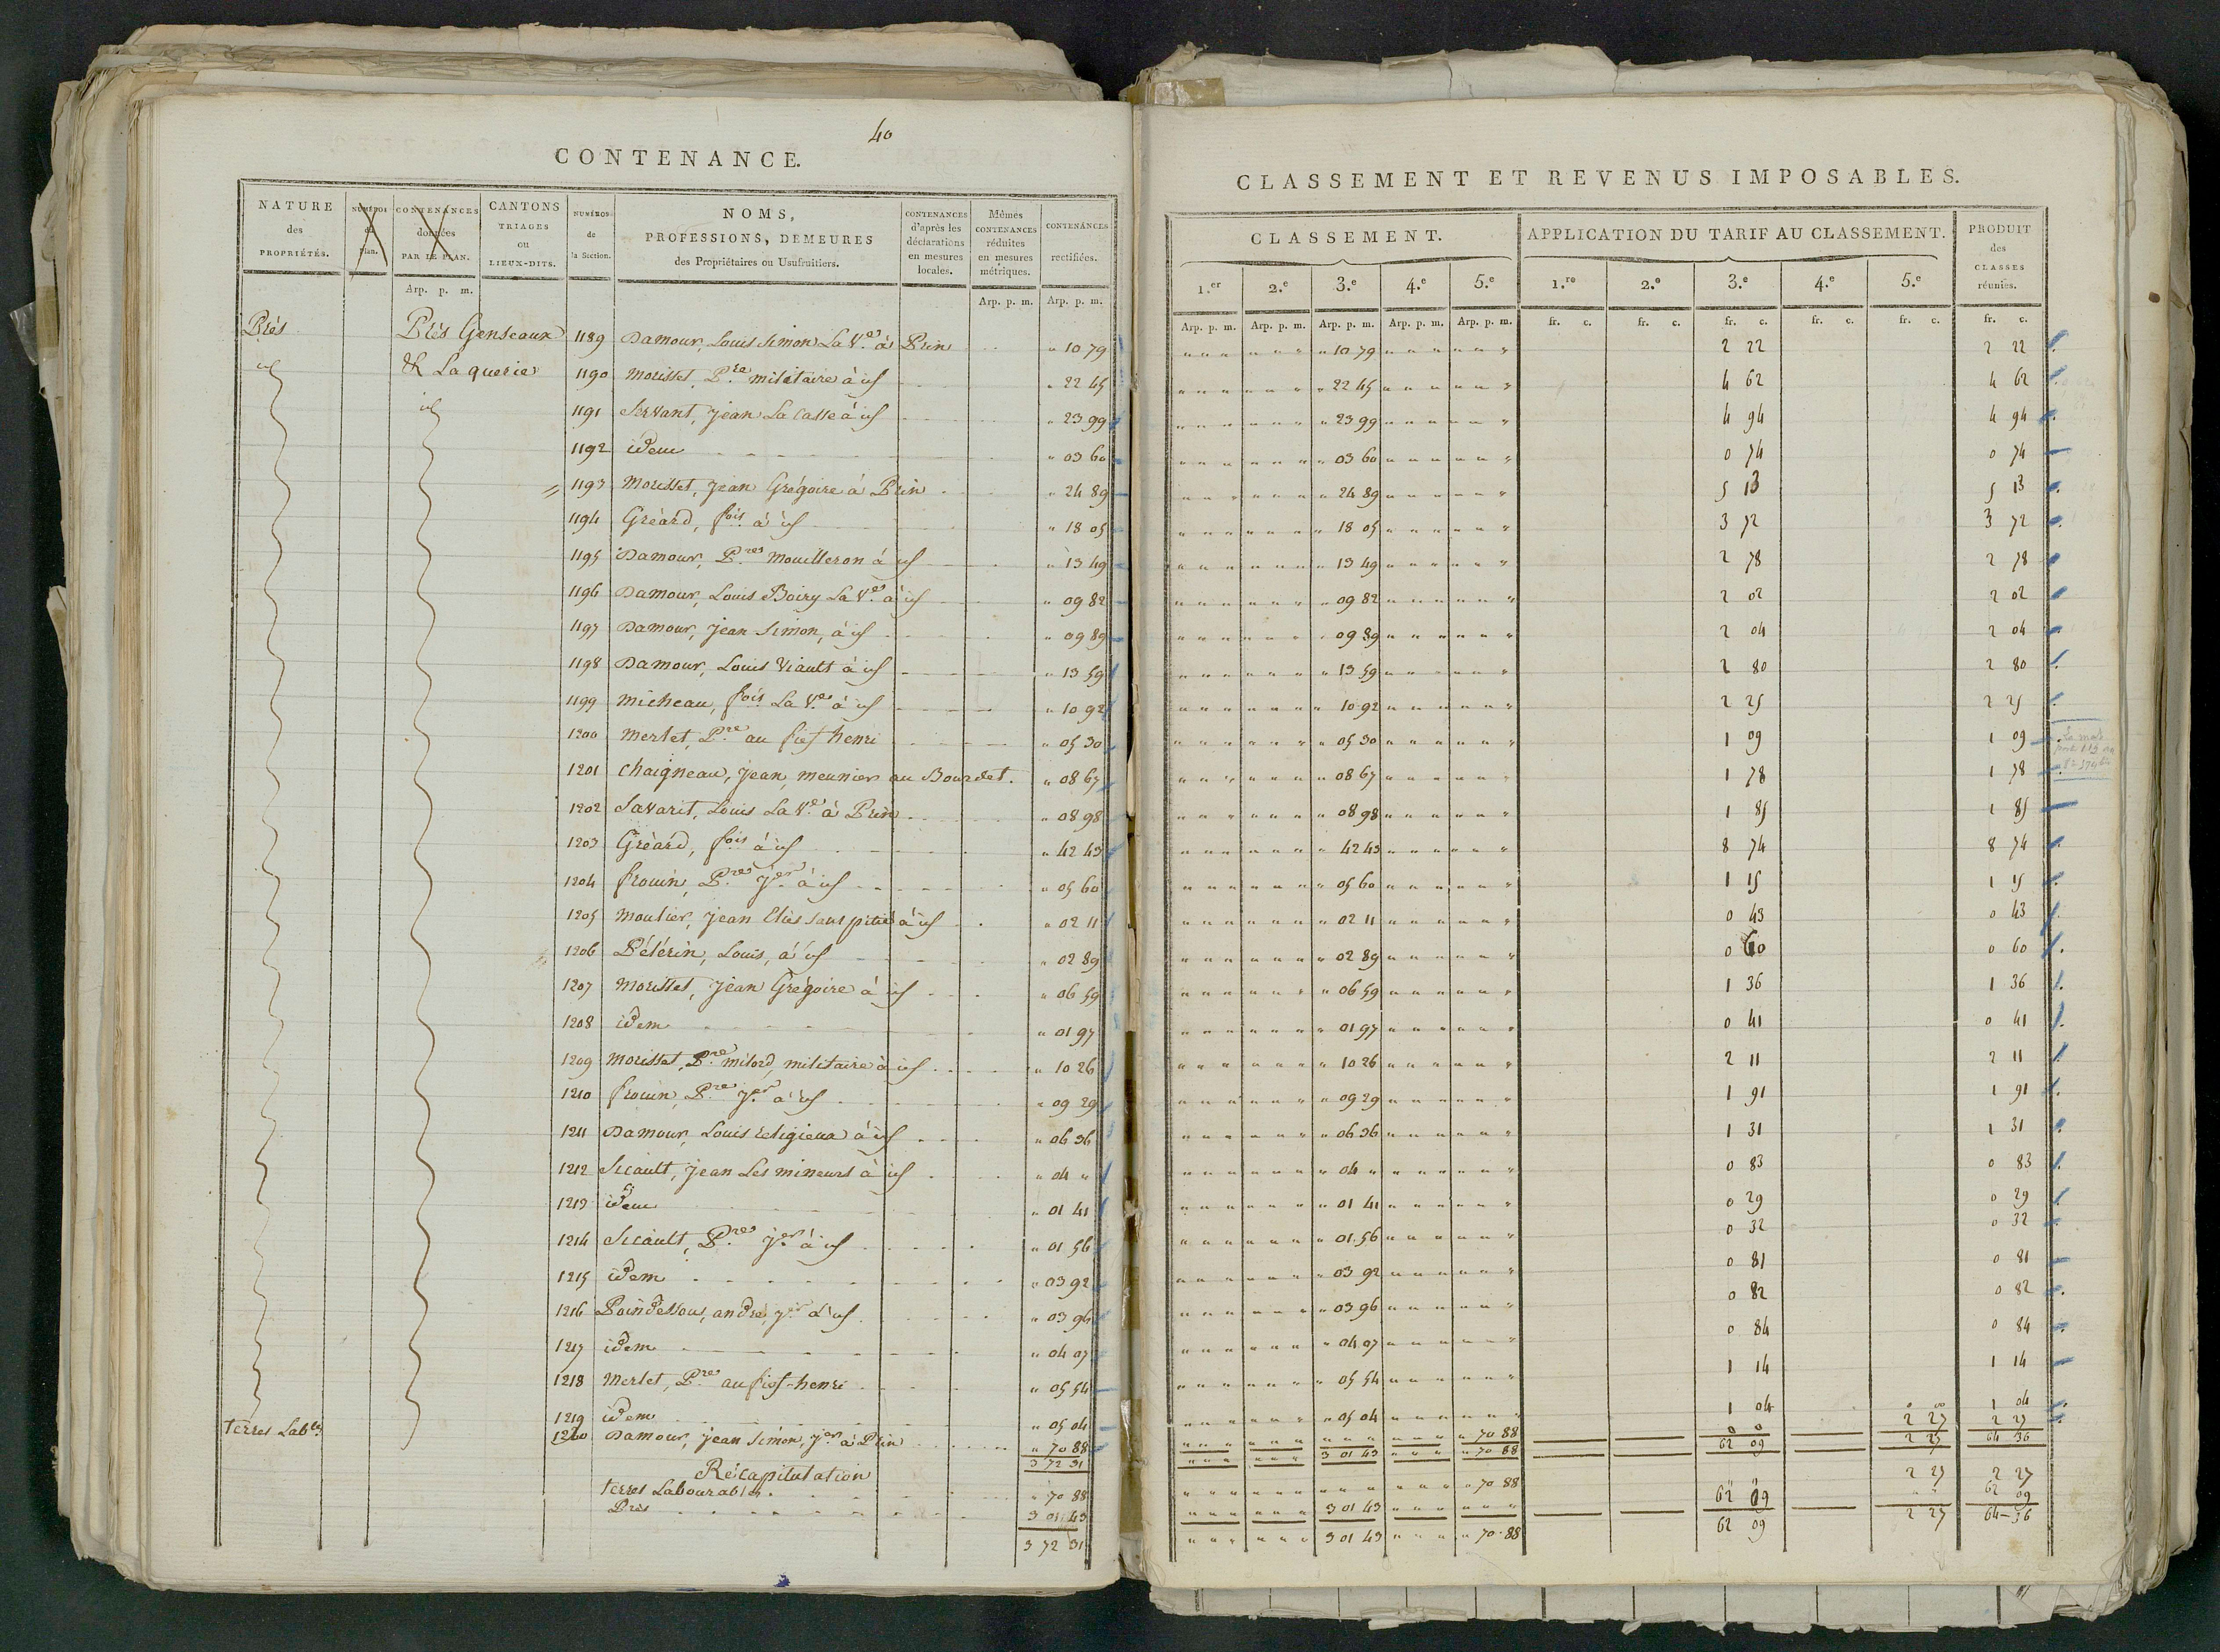 40
CONTENANCE.
NATURE des PROPRIÉTÉS. NUMÉROS du Plan. CONTENANCES données PAR LE PLAN. CANTONS TRIAGES ou LIEUX-DITS. NUMÉROS de la Section. NOMS, PROFESSIONS, DEMEURES des Propriétaires ou Usufruitiers. CONTENANCES d'après les déclarations en mesures locales. Mêmes CONTENANCES réduites en mesures métriques. CONTENANCES rectifiées.
Arp. p. m. Arp. p. m. Arp. p. m.
Prés Prés Genseaux 1189 Damour, Louis Simon La Ve. à Prin " 10 79
id & Laquerie 1190 Morisset, Pre. militaire à id " 22 45
id 1191 Servant, Jean La Casse à id " 23 99
1192 idem " 03 60
1193 Morisset, Jean Grégoire à Prin " 24 89
1194 Gréard, fois. à id " 18 05
1195 Damour, Pres. Mouilleron à id " 13 49
1196 Damour, Louis Boiry La Ve. à id " 09 82
1197 Damour, Jean Simon, à id " 09 89
1198 Damour, Louis Viault à id " 13 59
1199 Micheau, fois. La Ve. à id " 10 92
1200 Merlet, Pre. au fief henri " 05 30
1201 Chaigneau, Jean, meunier au Bourdet. " 08 67
1202 Savarit, Louis La Ve. à Prin " 08 98
1203 Gréard, fois. à id " 42 43
1204 frouin, Pre. Jer. à id " 05 60
1205 Moulier, Jean Elies sans pitié à id " 02 11
1206 Pélérin, Louis, à id " 02 89
1207 Morisset, Jean Grégoire à id " 06 59
1208 idem " 01 97
1209 Morisset, Pre. milord, militaire à id " 10 26
1210 frouin, Pre. Jer. à id " 09 29
1211 Damour, Louis religieux à id " 06 36
1212 Sicault, Jean Les mineurs à id " 04 "
1213 idem " 01 41
1214 Sicault, Pre. Jer. à id " 01 56
1215 idem " 03 92
1216 Poindessous, andré, Jer. à id " 03 96
1217 idem " 04 07
1218 Merlet, Pre. au fief-henri " 05 54
1219 idem " 05 04
Terres Lables. 1220 Damour, Jean Simon, Jer. à Prin " 70 88
3 72 31
Récapitulation
Terres Labourables " 70 88
Prés 3 01 43
3 72 31
CLASSEMENT ET REVENUS IMPOSABLES.
CLASSEMENT. APPLICATION DU TARIF AU CLASSEMENT. PRODUIT des CLASSES réunies.
1.er 2.e 3.e 4.e 5.e 1.re 2.e 3.e 4.e 5.e
Arp. p. m. Arp. p. m. Arp. p. m. Arp. p. m. Arp. p. m. fr. c. fr. c. fr. c. fr. c. fr. c. fr. c.
" 10 79 2 22 2 22
" 22 45 4 62 4 62
" 23 99 4 94 4 94
" 03 60 0 74 0 74
" 24 89 5 13 5 13
" 18 05 3 72 3 72
" 13 49 2 78 2 78
" 09 82 2 02 2 02
" 09 89 2 04 2 04
" 13 59 2 80 2 80
" 10 92 2 25 2 25
" 05 30 1 09 1 09
" 08 67 1 78 1 78
" 08 98 1 85 1 85
" 42 43 8 74 8 74
" 05 60 1 15 1 15
" 02 11 0 43 0 43
" 02 89 0 60 0 60
" 06 59 1 36 1 36
" 01 97 0 41 0 41
" 10 26 2 11 2 11
" 09 29 1 91 1 91
" 06 36 1 31 1 31
" 04 " 0 83 0 83
" 01 41 0 29 0 29
" 01 56 0 32 0 32
" 03 92 0 81 0 81
" 03 96 0 82 0 82
" 04 07 0 84 0 84
" 05 54 1 14 1 14
" 05 04 1 04 1 04
" 70 88 2 27 2 27
3 01 43 " 70 88 62 09 2 27 64 36
" 70 88 2 27 2 27
3 01 43 62 09 62 09
3 01 43 " 70 88 62 09 2 27 64-36